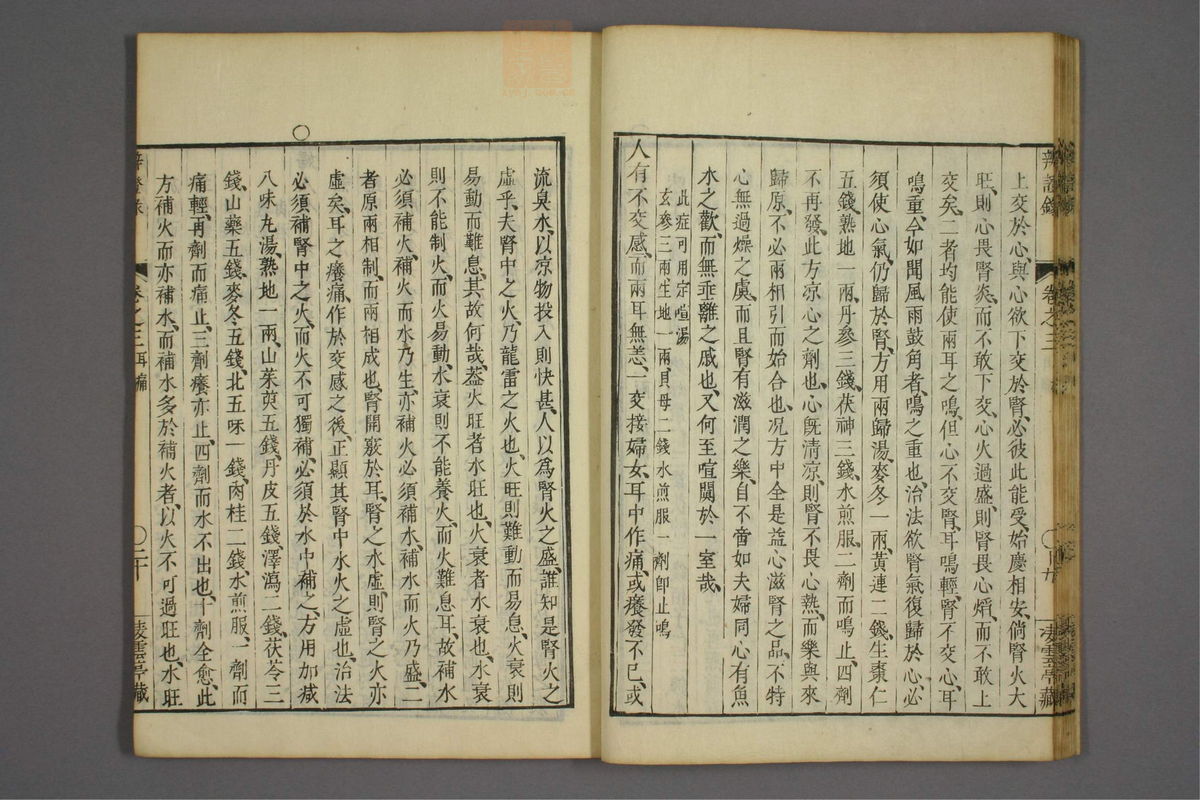 辨證錄 卷之三 凌雲亭藏
上交於心與心欲下交於腎必彼此能受始慶相安倘腎火大
旺則心畏腎炎而不敢下交心火過盛則腎畏心熖而不敢上
交矣二者均能使兩耳之鳴但心不交腎耳鳴輕腎不交心耳
鳴重今如聞風雨鼓角者鳴之重也治法欲腎氣復歸於心必
須使心氣仍歸於腎方用兩歸湯麥冬一兩黃連二錢生棗仁
五錢熟地一兩丹參三錢茯神三錢水煎服二劑而鳴止四劑
不再發此方凉心之劑也心旣清凉則腎不畏心熱而樂與來
歸原不必兩相引而始合也况方中全是益心滋腎之品不特
心無過燥之虞而且腎有滋潤之樂自不啻如夫婦同心有魚
水之歡而無乖離之戚也又何至喧鬧於一室哉
此症可用定喧湯
玄參三兩生地一兩貝母二錢水煎服一劑卽止鳴
人有不交感而兩耳無恙一交接婦女耳中作痛或癢發不已或
流臭水以凉物投入則快甚人以爲腎火之盛誰知是腎火之
虛乎夫腎中之火乃龍雷之火也火旺則難動而易息火衰則
易動而難息其故何哉蓋火旺者水旺也火衰者水衰也水衰
則不能制火而火易動水衰則不能養火而火難息耳故補水
必須補火補火而水乃生亦補火必須補水補水而火乃盛二
者原兩相制而兩相成也腎開竅於耳腎之水虛則腎之火亦
虛矣耳之癢痛作於交感之後正顯其腎中水火之虛也治法
必須補腎中之火而火不可獨補必須於水中補之方用加減
八味丸湯熟地一兩山茱萸五錢丹皮五錢澤瀉二錢茯苓三
錢山藥五錢麥冬五錢北五味一錢肉桂二錢水煎服一劑而
痛輕再劑而痛止三劑癢亦止四劑而水不出也十劑全愈此
方補火而亦補水而補水多於補火者以火不可過旺也水旺
辨證錄 卷之三耳痛 二十 凌雲亭藏